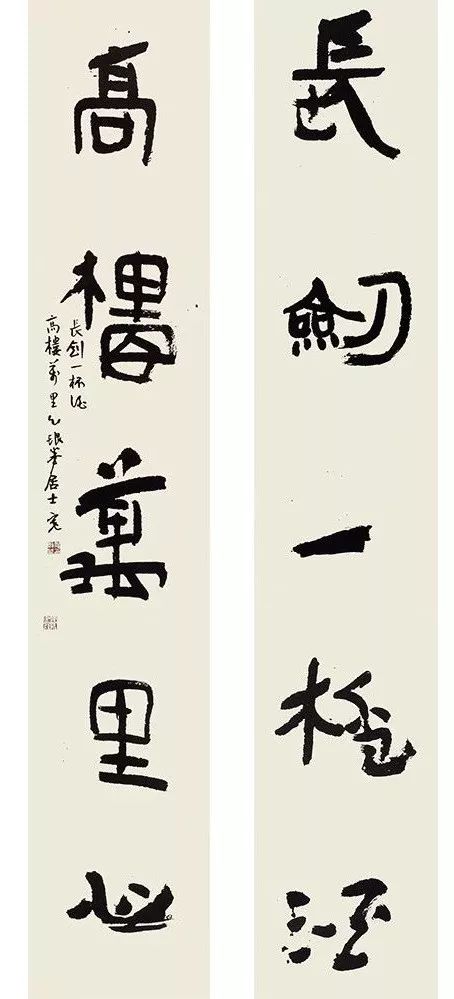 長劒一桮酒
高樓萬里心
長劍一杯酒
高樓萬里心 居士